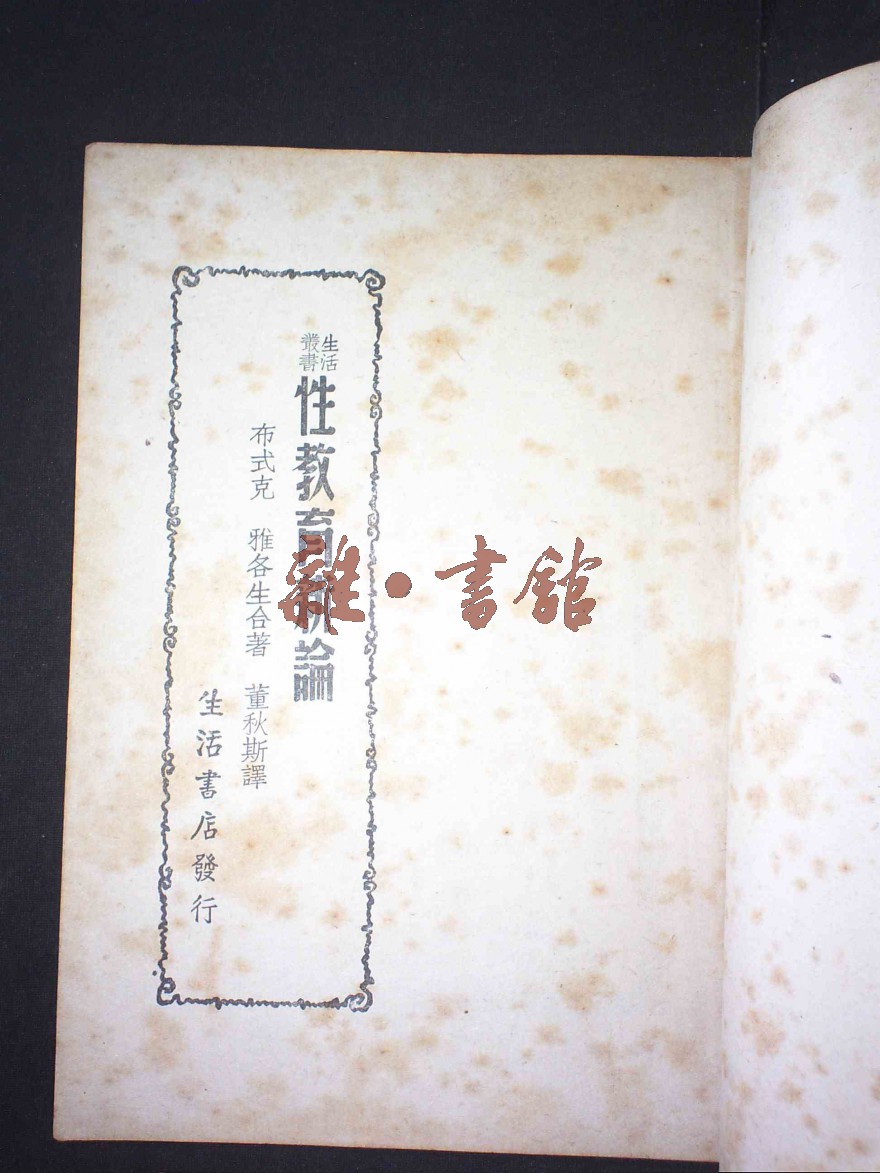 生活
叢書
性教育新論
布式克 雅各生合著 董秋斯譯
生活書店發行
雜·書館